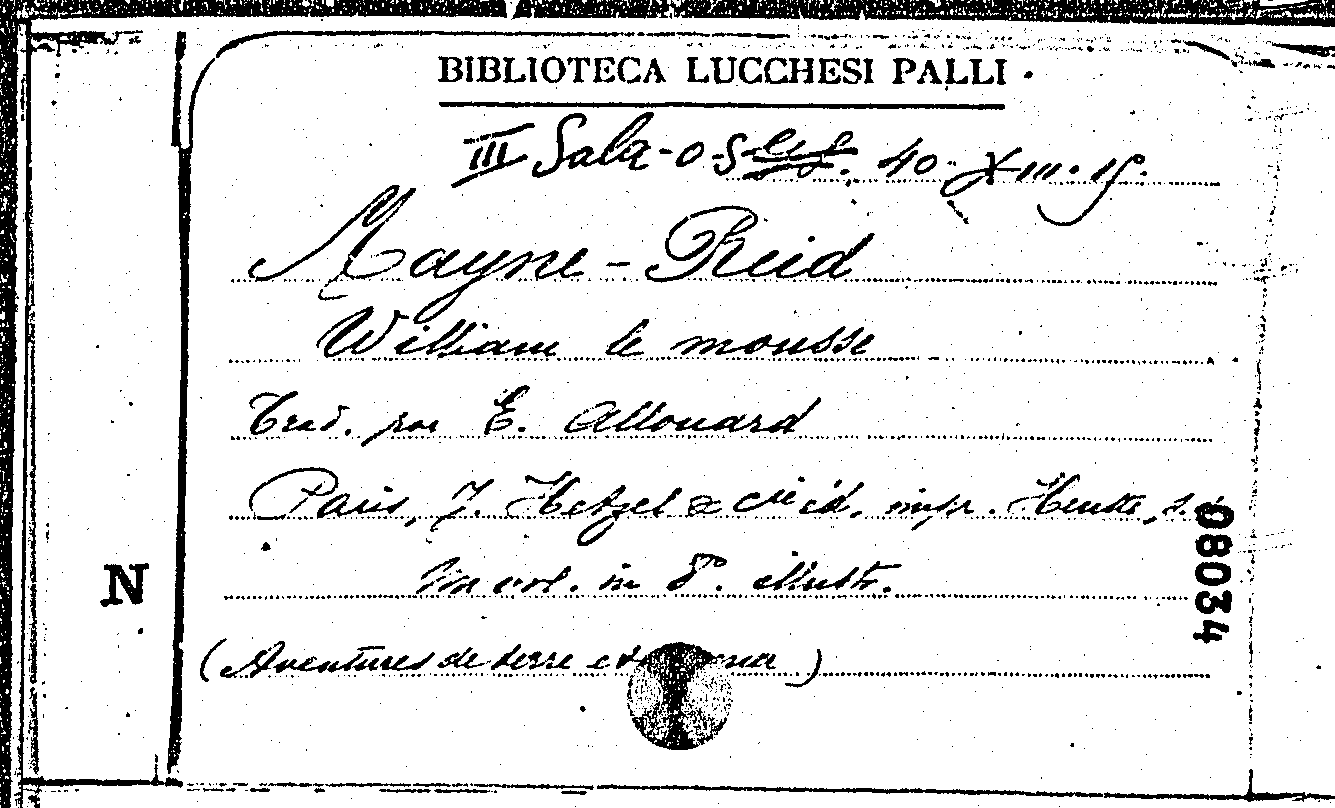 BIBLIOTECA LUCCHESI PALLI.
III Sala - 40 - XIII. 15.
Mayne - Reid
William le mousse
Trad. par E. Allouard
Paris, J. Hetzel & Cie éd. impr.
Un vol. in 8°. illustr.
(Aventures de terre et mer)
08034
N